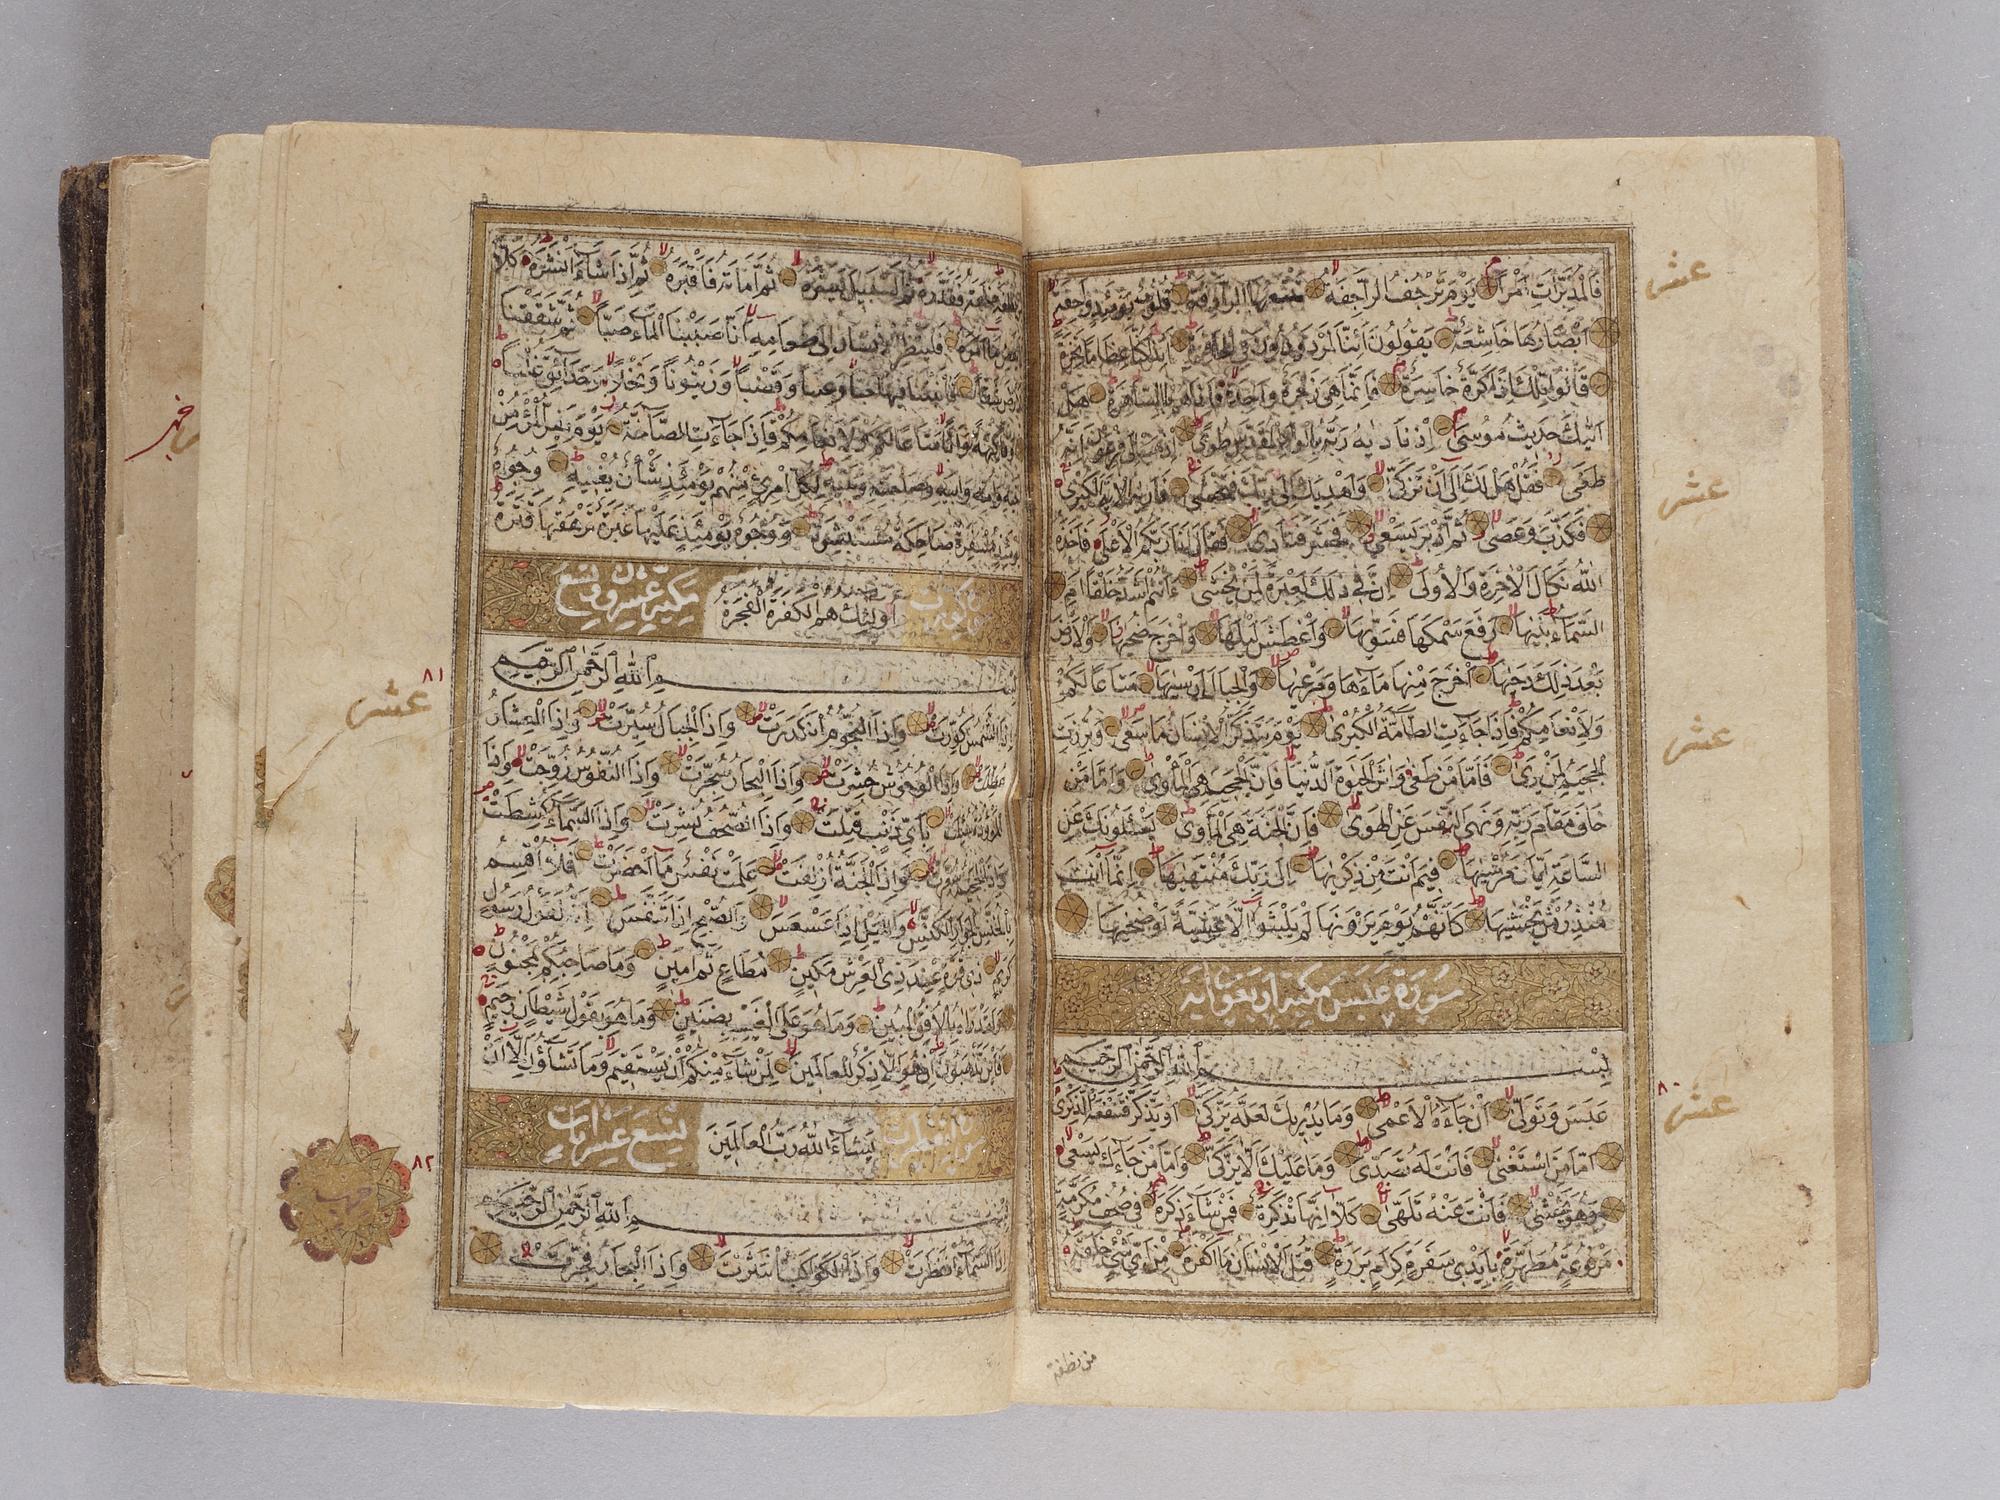 فَالْمُدَبِّرَاتِ أَمْرًا يَوْمَ تَرْجُفُ الرَّاجِفَةُ تَتْبَعُهَا الرَّادِفَةُ قُلُوبٌ يَوْمَئِذٍ وَاجِفَةٌ
أَبْصَارُهَا خَاشِعَةٌ يَقُولُونَ أَئِنَّا لَمَرْدُودُونَ فِي الْحَافِرَةِ أَئِذَا كُنَّا عِظَامًا نَخِرَةً
قَالُوا تِلْكَ إِذًا كَرَّةٌ خَاسِرَةٌ فَإِنَّمَا هِيَ زَجْرَةٌ وَاحِدَةٌ فَإِذَا هُمْ بِالسَّاهِرَةِ هَلْ
أَتٰيكَ حَدِيثُ مُوسَى إِذْ نَادٰيهُ رَبُّهُ بِالْوَادِ الْمُقَدَّسِ طُوًى اِذْهَبْ إِلَى فِرْعَوْنَ إِنَّهُ
طَغَى فَقُلْ هَلْ لَكَ إِلَى أَنْ تَزَكَّى وَأَهْدِيَكَ إِلَى رَبِّكَ فَتَخْشَى فَأَرٰيهُ الْآيَةَ الْكُبْرَى
فَكَذَّبَ وَعَصَى ثُمَّ أَدْبَرَ يَسْعَى فَحَشَرَ فَنَادَى فَقَالَ أَنَا رَبُّكُمُ الْأَعْلَى فَأَخَذَهُ
اللهُ نَكَالَ الْآخِرَةِ وَالْأُولَى إِنَّ فِي ذَلِكَ لَعِبْرَةً لِمَنْ يَخْشَى ءَأَنْتُمْ أَشَدُّ خَلْقًا أَمِ
السَّمَاءُ بَنٰيهَا رَفَعَ سَمْكَهَا فَسَوّٰيهَا وَأَغْطَشَ لَيْلَهَا وَأَخْرَجَ ضُحٰيهَا وَالْأَرْضَ
بَعْدَ ذَلِكَ دَحٰيهَا أَخْرَجَ مِنْهَا مَاءَهَا وَمَرْعٰيهَا وَالْجِبَالَ أَرْسٰيهَا مَتَاعًا لَكُمْ
وَلِأَنْعَامِكُمْ فَإِذَا جَاءَتِ الطَّامَّةُ الْكُبْرَى يَوْمَ يَتَذَكَّرُ الْإِنْسَانُ مَا سَعَى وَبُرِّزَتِ
الْجَحِيمُ لِمَنْ يَرَى فَأَمَّا مَنْ طَغَى وَآثَرَ الْحَيٰوةَ الدُّنْيَا فَإِنَّ الْجَحِيمَ هِيَ الْمَأْوَى وَأَمَّا مَنْ
خَافَ مَقَامَ رَبِّهِ وَنَهَى النَّفْسَ عَنِ الْهَوَى فَإِنَّ الْجَنَّةَ هِيَ الْمَأْوَى يَسْئَلُونَكَ عَنِ
السَّاعَةِ أَيَّانَ مُرْسٰيهَا فِيمَ أَنْتَ مِنْ ذِكْرٰيهَا إِلَى رَبِّكَ مُنْتَهٰيهَا إِنَّمَا أَنْتَ
مُنْذِرُ مَنْ يَخْشٰيهَا كَأَنَّهُمْ يَوْمَ يَرَوْنَهَا لَمْ يَلْبَثُوا إِلَّا عَشِيَّةً أَوْ ضُحٰيهَا
سورة عبس مكية اربعون اية
بسم الله الرحمن الرحيم
عَبَسَ وَتَوَلَّى أَنْ جَاءَهُ الْأَعْمَى وَمَا يُدْرِيكَ لَعَلَّهُ يَزَّكَّى أَوْ يَذَّكَّرُ فَتَنْفَعَهُ الذِّكْرَى
أَمَّا مَنِ اسْتَغْنَى فَأَنْتَ لَهُ تَصَدَّى وَمَا عَلَيْكَ أَلَّا يَزَّكَّى وَأَمَّا مَنْ جَاءَكَ يَسْعَى
وَهُوَ يَخْشَى فَأَنْتَ عَنْهُ تَلَهَّى كَلَّا إِنَّهَا تَذْكِرَةٌ فَمَنْ شَاءَ ذَكَرَهُ فِي صُحُفٍ مُكَرَّمَةٍ
مَرْفُوعَةٍ مُطَهَّرَةٍ بِأَيْدِي سَفَرَةٍ كِرَامٍ بَرَرَةٍ قُتِلَ الْإِنْسَانُ مَا أَكْفَرَهُ مِنْ أَيِّ شَيْءٍ خَلَقَهُ
من نطفة
عشر
عشر
عشر
٨٠
عشر
نُطْفَةٍ خَلَقَهُ فَقَدَّرَهُ ثُمَّ السَّبِيلَ يَسَّرَهُ ثُمَّ أَمَاتَهُ فَأَقْبَرَهُ ثُمَّ إِذَا شَاءَ أَنْشَرَهُ كَلَّا
يَقْضِ مَا أَمَرَهُ فَلْيَنْظُرِ الْإِنْسَانُ إِلَى طَعَامِهِ أَنَّا صَبَبْنَا الْمَاءَ صَبًّا ثُمَّ شَقَقْنَا
الْأَرْضَ شَقًّا فَأَنْبَتْنَا فِيهَا حَبًّا وَعِنَبًا وَقَضْبًا وَزَيْتُونًا وَنَخْلًا وَحَدَائِقَ غُلْبًا
وَفَاكِهَةً وَأَبًّا مَتَاعًا لَكُمْ وَلِأَنْعَامِكُمْ فَإِذَا جَاءَتِ الصَّاخَّةُ يَوْمَ يَفِرُّ الْمَرْءُ مِنْ
أَخِيهِ وَأُمِّهِ وَأَبِيهِ وَصَاحِبَتِهِ وَبَنِيهِ لِكُلِّ امْرِئٍ مِنْهُمْ يَوْمَئِذٍ شَأْنٌ يُغْنِيهِ وُجُوهٌ
يَوْمَئِذٍ مُسْفِرَةٌ ضَاحِكَةٌ مُسْتَبْشِرَةٌ وَوُجُوهٌ يَوْمَئِذٍ عَلَيْهَا غَبَرَةٌ تَرْهَقُهَا قَتَرَةٌ
أُولَئِكَ هُمُ الْكَفَرَةُ الْفَجَرَةُ
مكية عشرون وتسع
بسم الله الرحمن الرحيم
إِذَا الشَّمْسُ كُوِّرَتْ وَإِذَا النُّجُومُ انْكَدَرَتْ وَإِذَا الْجِبَالُ سُيِّرَتْ وَإِذَا الْعِشَارُ
عُطِّلَتْ وَإِذَا الْوُحُوشُ حُشِرَتْ وَإِذَا الْبِحَارُ سُجِّرَتْ وَإِذَا النُّفُوسُ زُوِّجَتْ وَإِذَا
الْمَوْؤُدَةُ سُئِلَتْ بِأَيِّ ذَنْبٍ قُتِلَتْ وَإِذَا الصُّحُفُ نُشِرَتْ وَإِذَا السَّمَاءُ كُشِطَتْ
وَإِذَا الْجَحِيمُ سُعِّرَتْ وَإِذَا الْجَنَّةُ أُزْلِفَتْ عَلِمَتْ نَفْسٌ مَا أَحْضَرَتْ فَلَا أُقْسِمُ
بِالْخُنَّسِ الْجَوَارِ الْكُنَّسِ وَاللَّيْلِ إِذَا عَسْعَسَ وَالصُّبْحِ إِذَا تَنَفَّسَ إِنَّهُ لَقَوْلُ رَسُولٍ
كَرِيمٍ ذِي قُوَّةٍ عِنْدَ ذِي الْعَرْشِ مَكِينٍ مُطَاعٍ ثَمَّ أَمِينٍ وَمَا صَاحِبُكُمْ بِمَجْنُونٍ
وَلَقَدْ رَآهُ بِالْأُفُقِ الْمُبِينِ وَمَا هُوَ عَلَى الْغَيْبِ بِضَنِينٍ وَمَا هُوَ بِقَوْلِ شَيْطَانٍ رَجِيمٍ
فَأَيْنَ تَذْهَبُونَ إِنْ هُوَ إِلَّا ذِكْرٌ لِلْعَالَمِينَ لِمَنْ شَاءَ مِنْكُمْ أَنْ يَسْتَقِيمَ وَمَا تَشَاؤُنَ إِلَّا أَنْ
يَشَاءَ اللهُ رَبُّ الْعَالَمِينَ
تسع عشر ايات
بسم الله الرحمن الرحيم
إِذَا السَّمَاءُ انْفَطَرَتْ وَإِذَا الْكَوَاكِبُ انْتَثَرَتْ وَإِذَا الْبِحَارُ فُجِّرَتْ
٨١
عشر
٨٢
حزب